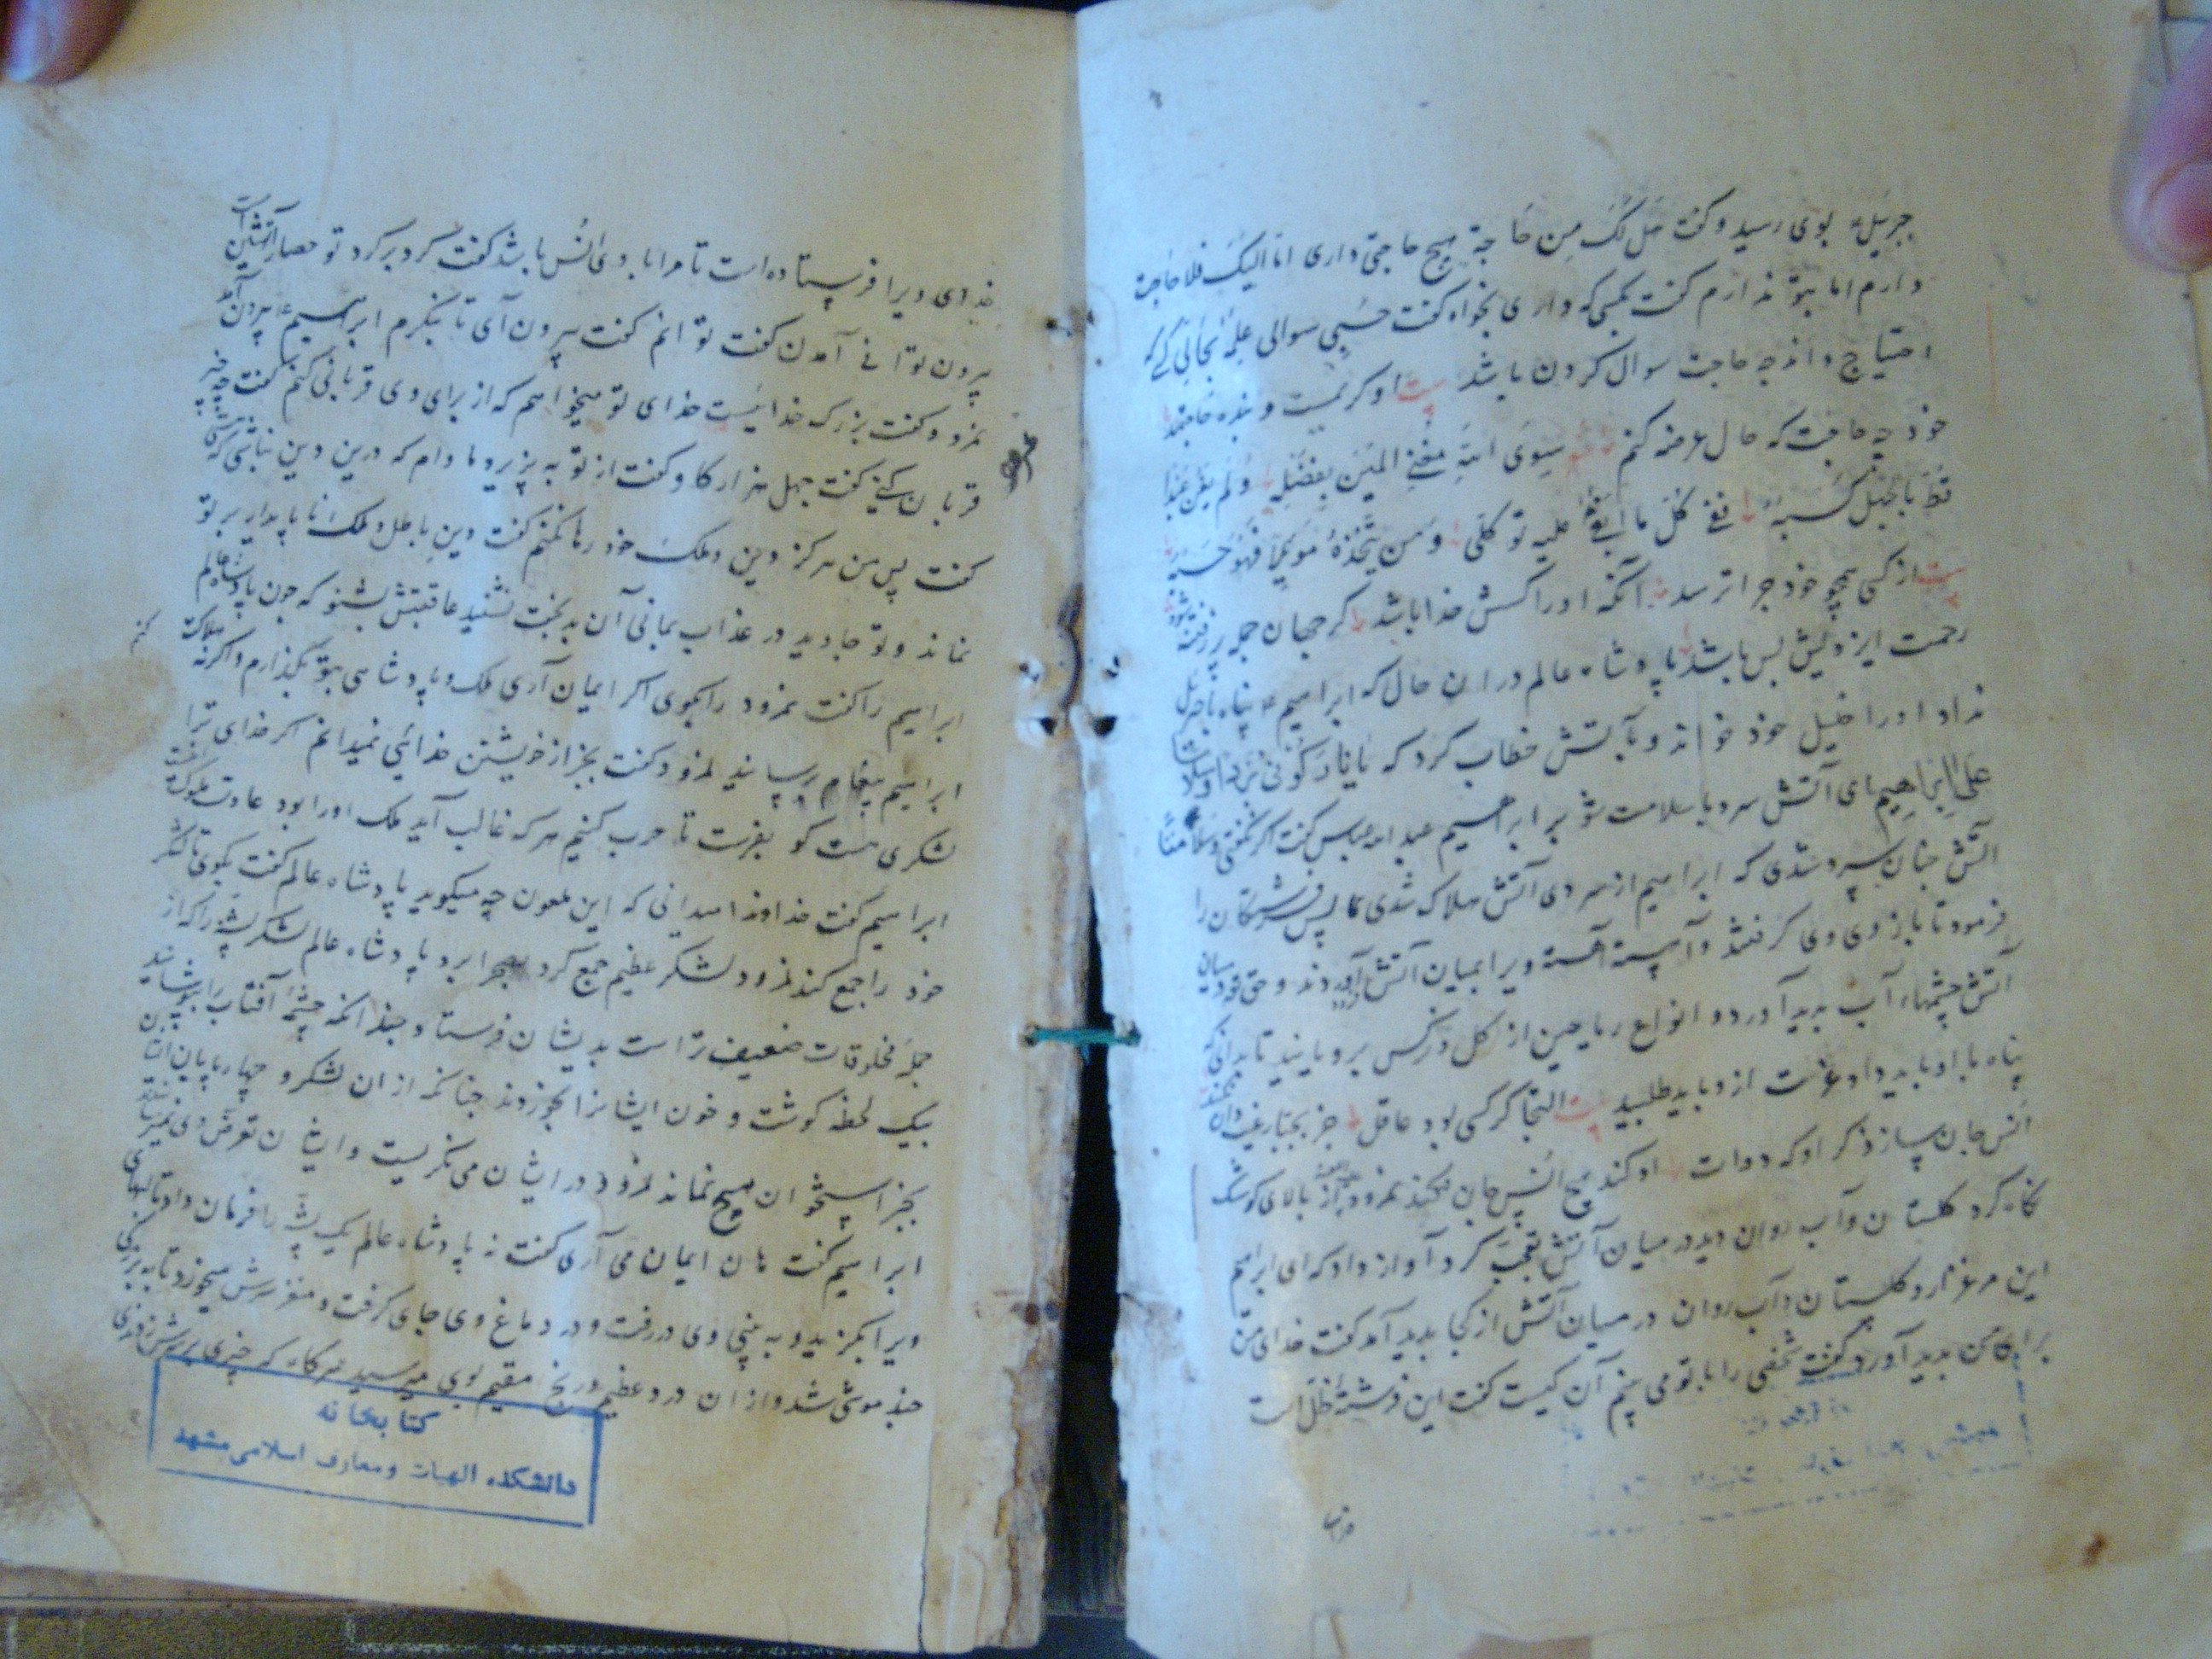 جبرئیل ع بوی رسید و کفت هَل لَکَ مِن حَاجَة هیچ حاجتی داری اَمّا الیکَ فلا حاجت
دارم اما بتو ندارم کفت بکسی که داری بخواه کفت حَسبی سوالی علمُهُ بحالی کی که
احتیاج داند چه حاجت سوال کردن باشد بیت او کریمست و بنده حاجتمند
خود چه حاجت که حال عرضه کنم سِوَی
قَطُّ فَفی کُلّ ما علیه توکّلی وَ مَن یتّخذهُ فَهُوَ حَسبُهُ
بیت از کسی همچو خود چرا ترسد آنکه او را کسش خدا باشد کر جهان جمله پر زفتنه شود
رحمت ایزدیش بس باشد پادشاه عالم دران حال که ابراهیم ع پناه با جبرئیل
نداد او را خلیل خود خواند و بآتش خطاب کرد که یا نارُ کُونی بَرداً وسلاماً
عَلی اِبراهیم ای آتش سرد با سلامت شو بر ابراهیم عبد الله عباس کفت اکر نکفتی وسلاماً
آتش چنان سرد شدی که ابراهیم از سردی آتش هلاک شدی پس فرشتکان را
فرمود تا بازوی وی کرفتند و آهسته آهسته ویرا بمیان آتش آوردند و حق تع در میان
آتش چشمهاء آب بدید آورد و انواع ریاحین از کل و نرکس برویانید تا بدانی که
پناه با او باید داد و غرض ازو باید طلبید بیت التجا کر کسی بود عاقل جز بجبار غیب دان نکند
اُنس جان ساز ذکر او که دوات او کند هیچ اُنس جان نکند نمرود از بالای کوشک
نکاه کرد کلستان و آب روان دید در میان آتش تعجّب کرد آواز داد که ای ابراهیم
این مرغزار و کلستان و آب روان در میان آتش از کجا بدید آمد کفت خدای من
برای من بدید آورد کفت شخصی را با تو می بینم آن کیست کفت این فرشتهٔ ظلّ است
خدای
خدای ویرا فرستاده است تا مرا با وی اُنس باشد کفت کرد بر کرد تو حصار آتشین است
بیرون توانی آمدن کفت توانم کفت بیرون آی تا بنکرم ابراهیم ع بیرون آمد
نمرود کفت بزرک خدائیست خدای تو میخواهم که از برای وی قربانی کنم کفت چه چیز
قربان کنی کفت چهل هزار کاو کفت از تو نه پزیرد مادام که درین دین باشی که
کفت پس من هرکز دین و ملک خود رها نکنم کفت دین باطل و ملک ناپایدار بر تو
نماند و تو جاوید در عذاب بمانی آن بدبخت نشنید عاقبتش بشنو که چون پادشاه عالم
ابراهیم را کفت نمرود را بکوی اکر ایمان آری ملک و پادشاهی بتو بکذارم و اکرنه هلاکت
کنم
ابراهیم پیغام رسانید نمرود کفت بجز از خویشتن خدائی نمیدانم اکر خدای ترا
لشکری هست کو بفرست تا حرب کنیم هر که غالب آید ملک او را بود عادت ملوک
ابراهیم کفت خداوندا میدانی که این ملعون چه میکوید پادشاه عالم کفت بکوی تا لشکر
خود را جمع کند نمرود لشکر عظیم جمع کرد بصحرا برد پادشاه عالم لشکر پشه را که از
جملهٔ مخلوقات ضعیف تر است بدیشان فرستاد چندانکه چشمهٔ آفتاب را بپوشانید
بیک لحظه کوشت و خون ایشانرا بخوردند چنانکه از ان لشکر و چهارپایان
بجز استخوان هیچ نماند نمرود در ایشان می نکریست و ایشان تعرّض وی
ابراهیم کفت هان ایمان می آری کفت نه پادشاه عالم یک پشه را فرمان داد تا لبهای
ویرا بکزید و به بینی وی در رفت و در دماغ وی جای کرفت و مغز سرش میخورد تا به بزرکی
چند موشی شد و از ان درد عظیم و رنج مقیم بوی میرسید هرکاه که چیزی بر سرش زدندی
کتابخانه
دانشکده الهیات و معارف اسلامی مشهد